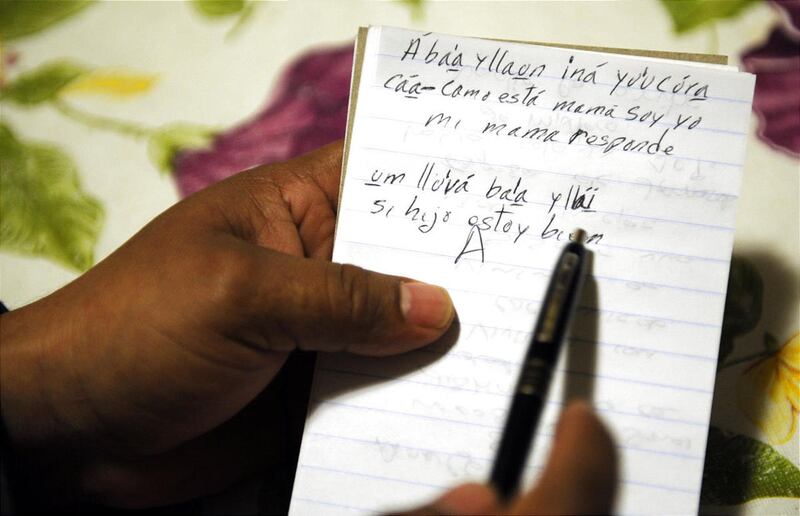 Ába'a yllaun iná yo'ucóra
cáa- Como está mamá soy yo
mi mama responde
um llo'vá ba'a yllaï
si hijo estoy bien
A